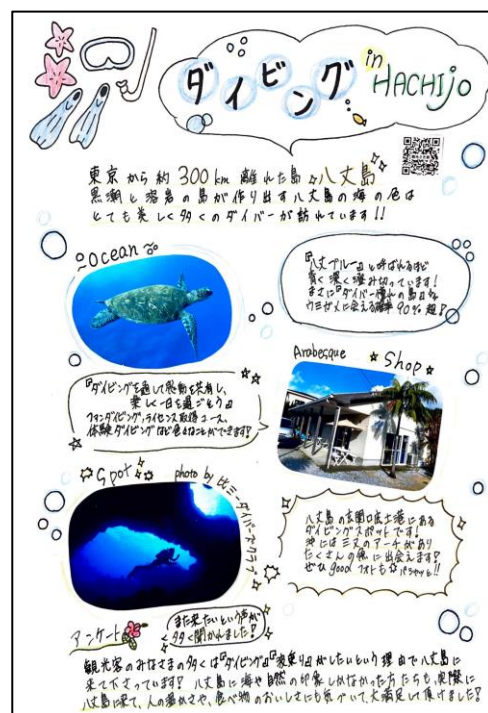 ダイビング in HACHIJo
東京から約300km離れた島 八丈島
黒潮と溶岩の島が作り出す八丈島の海の色は
とても美しく多くのダイバーが訪れています!!
Ocean
『八丈ブルー』と呼ばれるほど
青く濃く澄み切っています!
まさに『ダイバー憧れの島』
ウミガメに会える確率90%超!
Arabesque Shop
『ダイビングを通して感動を共有し、
楽しく一日を過ごそう』
ファンダイビング,ライセンス取得コース、
体験ダイビングなど色々なことができます!
Spot photo by
八丈島の玄関口底土港にある
ダイビングスポットです!
沖には三叉のアーチがあり
たくさんの魚に出会えます?
ぜひgoodフォトもパシャッと!!
アンケート
また来たいという声が
多く聞かれました!
観光客のみなさまの多くは『ダイビング』『波乗り』がしたいという理由で八丈島に
来て下さっています! 八丈島に海や自然の印象しかなかった方たちも、実際に
八丈島に来て、人の温かさや、食べ物のおいしさにも気づいて、大満足して頂けました!